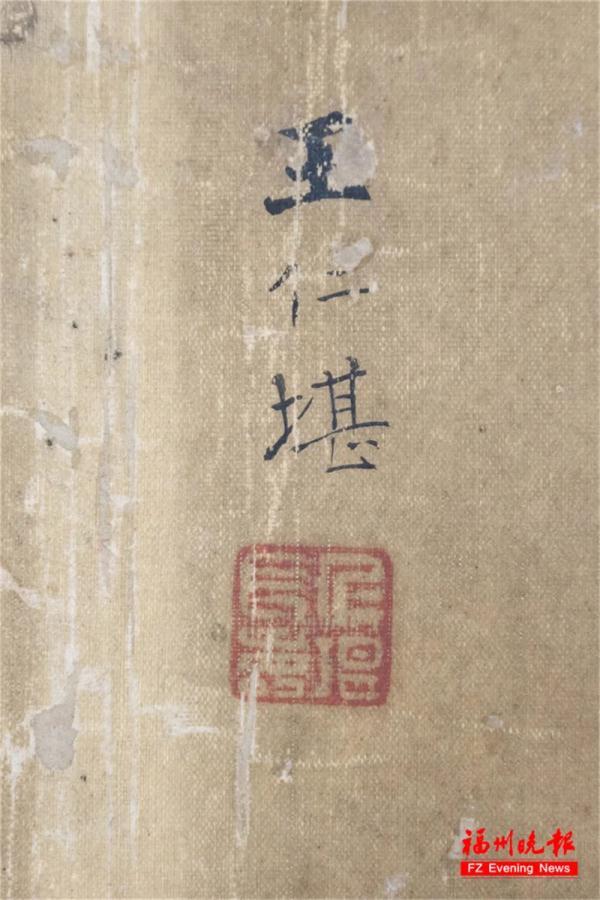 王仁堪
福州晚报
FZ Evening News